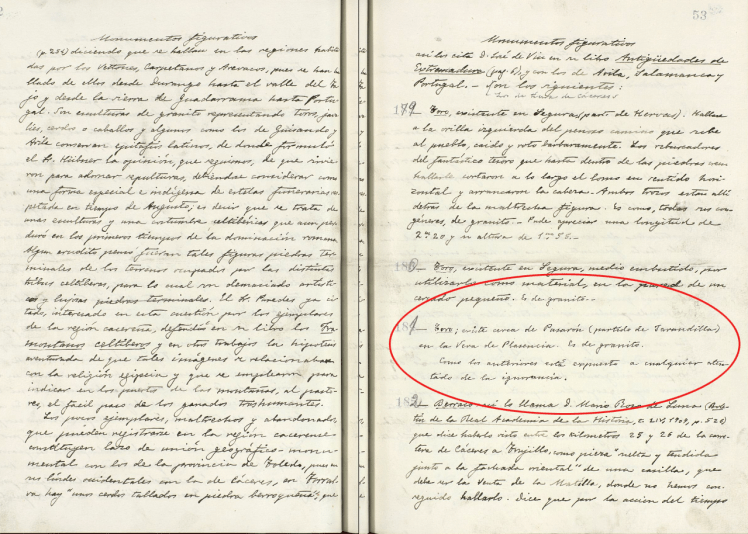 Monumentos figurativos
(p. 254) diciendo que se hallan en las regiones habita-
das por los Vettones, Carpetanos y Arevacos, pues se han ha-
llado de ellos desde Durango hasta el valle del Ta-
jo y desde la sierra de Guadarrama hasta Portu-
gal. Son esculturas de granito representando toros, jaba-
líes, cerdos o caballos y algunos como los de Guisando y
Avila conservan epitafios latinos, de donde formuló
el Sr. Hübner la opinión, que seguimos, de que sirvie-
ron para adornar sepulturas, debiendose considerar como
una forma especial e indígena de estelas funerarias res-
petada en tiempo de Augusto; es decir que se trata de
unas esculturas y una costumbre celtibéricas que aun per-
duró en los primeros tiempos de la dominación romana
Algun erudito pensó fueran tales figuras piedras ter-
minales de los terrenos ocupados por las distintas
tribus celtíberas, para lo cual son demasiado artisti-
cas y lujosas piedras terminales. El Sr. Paredes ya ci-
tado, interesado en esta cuestión por los ejemplares
de la región cacereña, defendió en su libro los Fra-
montanos celtíberos y en otros trabajos la hipótesis
aventurada de que tales imágenes se relacionaban
con la religión egipcia y que se emplearon para
indicar en los puertos de las montañas, al pasto-
reo, el fácil paso de los ganados trashumantes.
Los pocos ejemplares, maltrechos y abandonados,
que pueden registrarse en la región cacereña
constituyen lazo de unión geográfico-monu-
mental con los de la provincia de Toledo, pues en
sus lindes occidentales con la de Cáceres, en Torral-
va hay "unos cerdos tallados en piedra berroqueña", que
53
Monumentos figurativos
así los cita D. José de Viu en su libro Antigüedades de
Extremadura (pag. ), y con los de Avila, Salamanca y
Portugal. - Son los siguientes:
179 Toro, existente en Segura (part. de Hervas). Hallase
a la orilla izquierda del penoso camino que sube
al pueblo, caido y roto bárbaramente. Los rebuscadores
del fantástico tesoro que hasta dentro de las piedras creen
hallarle cortaron a lo largo el lomo en sentido hori-
zontal y arrancaron la cabeza. Ambos trozos estan allí
detrás de la maltrecha figura. Es como, todas sus con-
géneres, de granito. - Pude apreciar una longitud de
2m 20 y su altura de 1m 38. -
180 - Toro, existente en Segura, medio embutido, por
utilizarle como material, en la pared de un
cercado pequeño. Es de granito. -
181 - Toro; existe cerca de Pasarón (partido de Jarandilla)
en la Vera de Plasencia. Es de granito.
Como los anteriores está expuesto a cualquier aten-
tado de la ignorancia.
182 - Berraco así lo llama D. Mario Roso de Luna (Bole-
tín de la Real Academia de la Historia, t. 1904, p. )
que dice haberlo visto entre los kilómetros 25 y 26 de la carre-
tera de Cáceres a Trujillo, como pieza "suelta y tendida
junto a la fachada oriental" de una casilla, que
debe ser la Venta de la Matilla, donde no hemos con-
seguido hallarlo. Dice que por la acción del tiempo